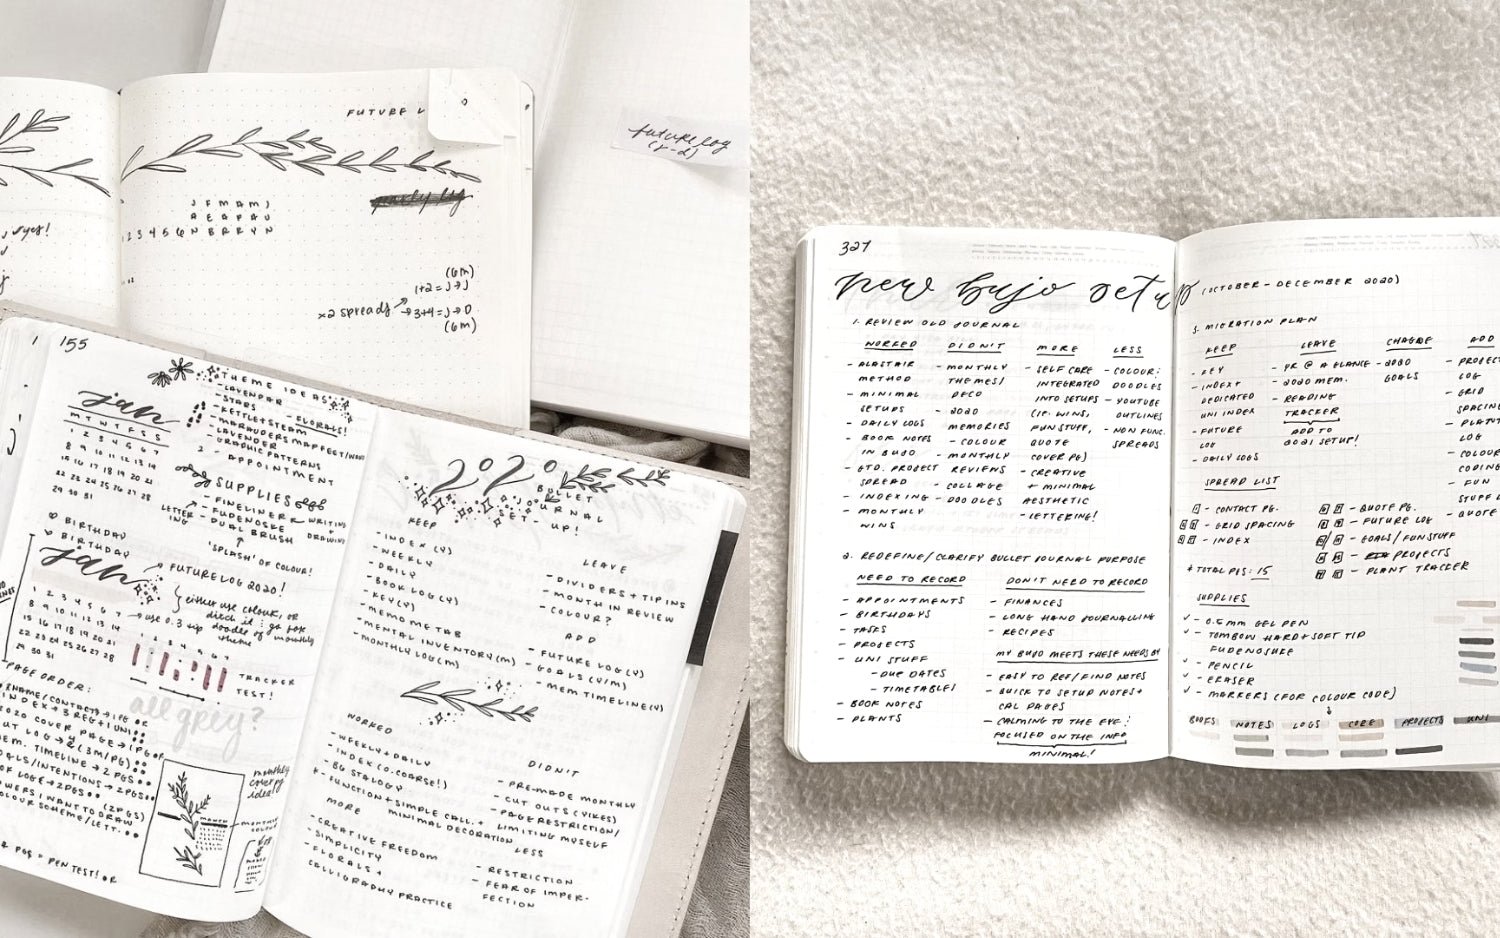 FUTURE L
future log
(x-2)
J F M A M J
A E A P A U
1 2 3 4 5 6 N B R R Y N
yes!
(6M)
1+2 = J → J
x2 spreads → 3+4 = J → D
(6M)
155
jan
M T W T F S S
1 2 3 4 5 6 7
8 9 10 11 12 13 14
15 16 17 18 19 20 21
22 23 24 25 26 27 28
29 30 31
♡ BIRTHDAY
♡ BIRTHDAY
THEME IDEAS
- LAVENDAR
- STARS
- FLORALS!
- KETTLE + STEAM
- MARAUDERS MAP FEET/WAND
- LAVENDER
- GRAPHIC PATTERNS
2 - APPOINTMENT
SUPPLIES
- FINELINER WRITING
- FUDENOSKE DRAWING
- DUAL BRUSH
LETTERING
'SPLASH' OF COLOUR!
jan
FUTURE LOG 2020!
either use colour, or
ditch it : go for
doodles of monthly
theme
→ use 0.3 tip
1 2 3 4 5 6 7
8 9 10 11 12 13 14
15 16 17 18 19 20 21
22 23 24 25 26 27 28
29 30 31
1 2 3 4 5 6 7
TRACKER
TEST!
all grey?
PAGE ORDER:
NAME/CONTACT → 1PG OR
INDEX → 3 REG + 1 UNI
2020 COVER PAGE → 1PG OR
LOG → 2 (3M/PG)
MEM. TIMELINE → 2 PGS
GOALS/INTENTIONS → 2PGS
LOG → 2PGS (2PGS)
I WANT TO DRAW
COLOUR SCHEME/LETT.
PGS = PEN TEST! OR
monthly
cover pg
idea!
MONTH
2020
BULLET
JOURNAL
SET-UP!
KEEP
- INDEX (Y)
- WEEKLY
- DAILY
- BOOK LOG (Y)
- KEY (Y)
- MEMO METAB
- MENTAL INVENTORY (M)
- MONTHLY LOG (M)
LEAVE
- DIVIDERS + TIP INS
- MONTH IN REVIEW
- COLOUR?
ADD
- FUTURE LOG (Y)
- GOALS (Y/M)
- MEM TIMELINE (Y)
WORKED
- WEEKLY + DAILY
- INDEX (O-COARSE!)
- B6 STALOGY
+ FUNCTION + SIMPLE CALL. +
MINIMAL DECORATION
DIDN'T
- PRE-MADE MONTHLY
- CUT OUTS (YIKES)
- PAGE RESTRICTION/
LIMITING MYSELF
MORE
- CREATIVE FREEDOM
- SIMPLICITY
- FLORALS +
CALLIGRAPHY PRACTICE
LESS
- RESTRICTION
- FEAR OF IMPER-
FECTION
327
new bujo setup (OCTOBER - DECEMBER 2020)
1. REVIEW OLD JOURNAL
WORKED
- ALASTAIR
METHOD
- MINIMAL
SETUPS
- DAILY LOGS
- BOOK NOTES
IN BUJO
- GTD. PROJECT
SPREAD
- INDEXING
- MONTHLY
WINS
DIDN'T
- MONTHLY
THEMES/
DECO
- 2020
MEMORIES
- COLOUR
- MONTHLY
REVIEWS
- COLLAGE
- DOODLES
MORE
- SELF CARE
INTEGRATED
INTO SETUPS
(IE. WINS,
FUN STUFF,
QUOTE
COVER PG)
- CREATIVE
+ MINIMAL
AESTHETIC
- LETTERING!
LESS
- COLOUR:
DOODLES
- YOUTUBE
OUTLINES
- NON FUNC.
SPREADS
2. REDEFINE/CLARIFY BULLET JOURNAL PURPOSE
NEED TO RECORD
- APPOINTMENTS
- BIRTHDAYS
- TASKS
- PROJECTS
- UNI STUFF
- DUE DATES
- TIMETABLES
- BOOK NOTES
- PLANTS
DON'T NEED TO RECORD
- FINANCES
- LONG HAND JOURNALLING
- RECIPES
MY BUJO MEETS THESE NEEDS BY
- EASY TO REF/FIND NOTES
- QUICK TO SETUP NOTES +
CAL PAGES
- CALMING TO THE EYE:
FOCUSED ON THE INFO
MINIMAL!
3. MIGRATION PLAN
KEEP
- KEY
- INDEX +
DEDICATED
UNI INDEX
- FUTURE
LOG
- DAILY LOGS
LEAVE
- YR @ A GLANCE
- 2020 MEM.
- READING
TRACKER
ADD TO
GOAL SETUP!
CHANGE
- 2020
GOALS
ADD
- PROJECT
LOG
- GRID
SPACING
- PLANT
LOG
- COLOUR
CODING
- FUN
STUFF
- QUOTE
SPREAD LIST
- CONTACT PG.
- GRID SPACING
- INDEX
- QUOTE PG.
- FUTURE LOG
- GOALS/FUN STUFF
- PROJECTS
- PLANT TRACKER
* TOTAL PGS: 15
SUPPLIES
✓ - 0.5 MM GEL PEN
✓ - TOMBOW HARD + SOFT TIP
FUDENOSUKE
✓ - PENCIL
✓ - ERASER
✓ - MARKERS (FOR COLOUR CODE)
BOOKS NOTES LOGS CORE PROJECTS UNI